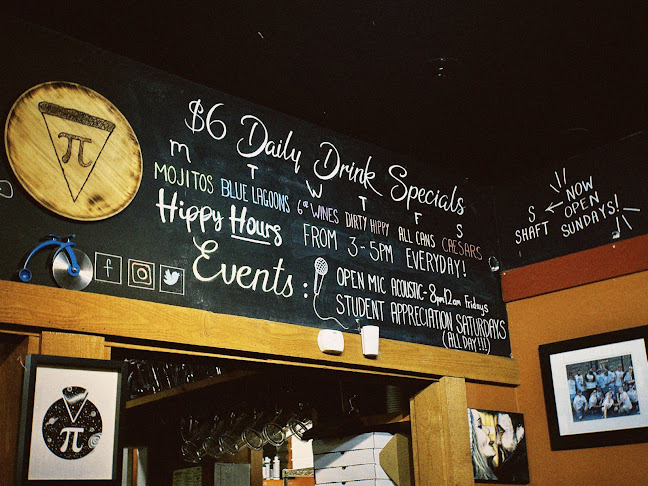 $6 Daily Drink Specials
M T W T F S
MOJITOS BLUE LAGOONS 6oz WINES DIRTY HIPPY ALL CANS CAESARS
Hippy Hours FROM 3-5PM EVERYDAY!
Events: OPEN MIC ACOUSTIC - 8pm-12am Fridays
STUDENT APPRECIATION SATURDAYS
(ALL DAY!!!)
S
SHAFT
NOW
OPEN
SUNDAYS!
π
f
π